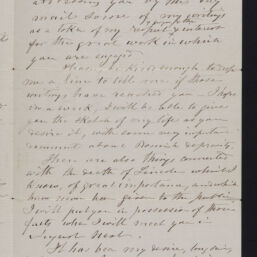 addressing you by the
mail some of my writings
as a token of my respect & interest
for the great work in which
you are engaged.
Please be kind enough to drop
me a line to tell me if those
writings have reached you. I hope
in a week, I will be able to give
you the sketch of my life as you
desire it, with some very important
documents about Romish depravity.
There are also things connected
with the death of Lincoln which I
know, of great importance, and which
have never been given to the public.
I will put you in possession of those
facts when I will meet you in
August next.
It has been my desire, long